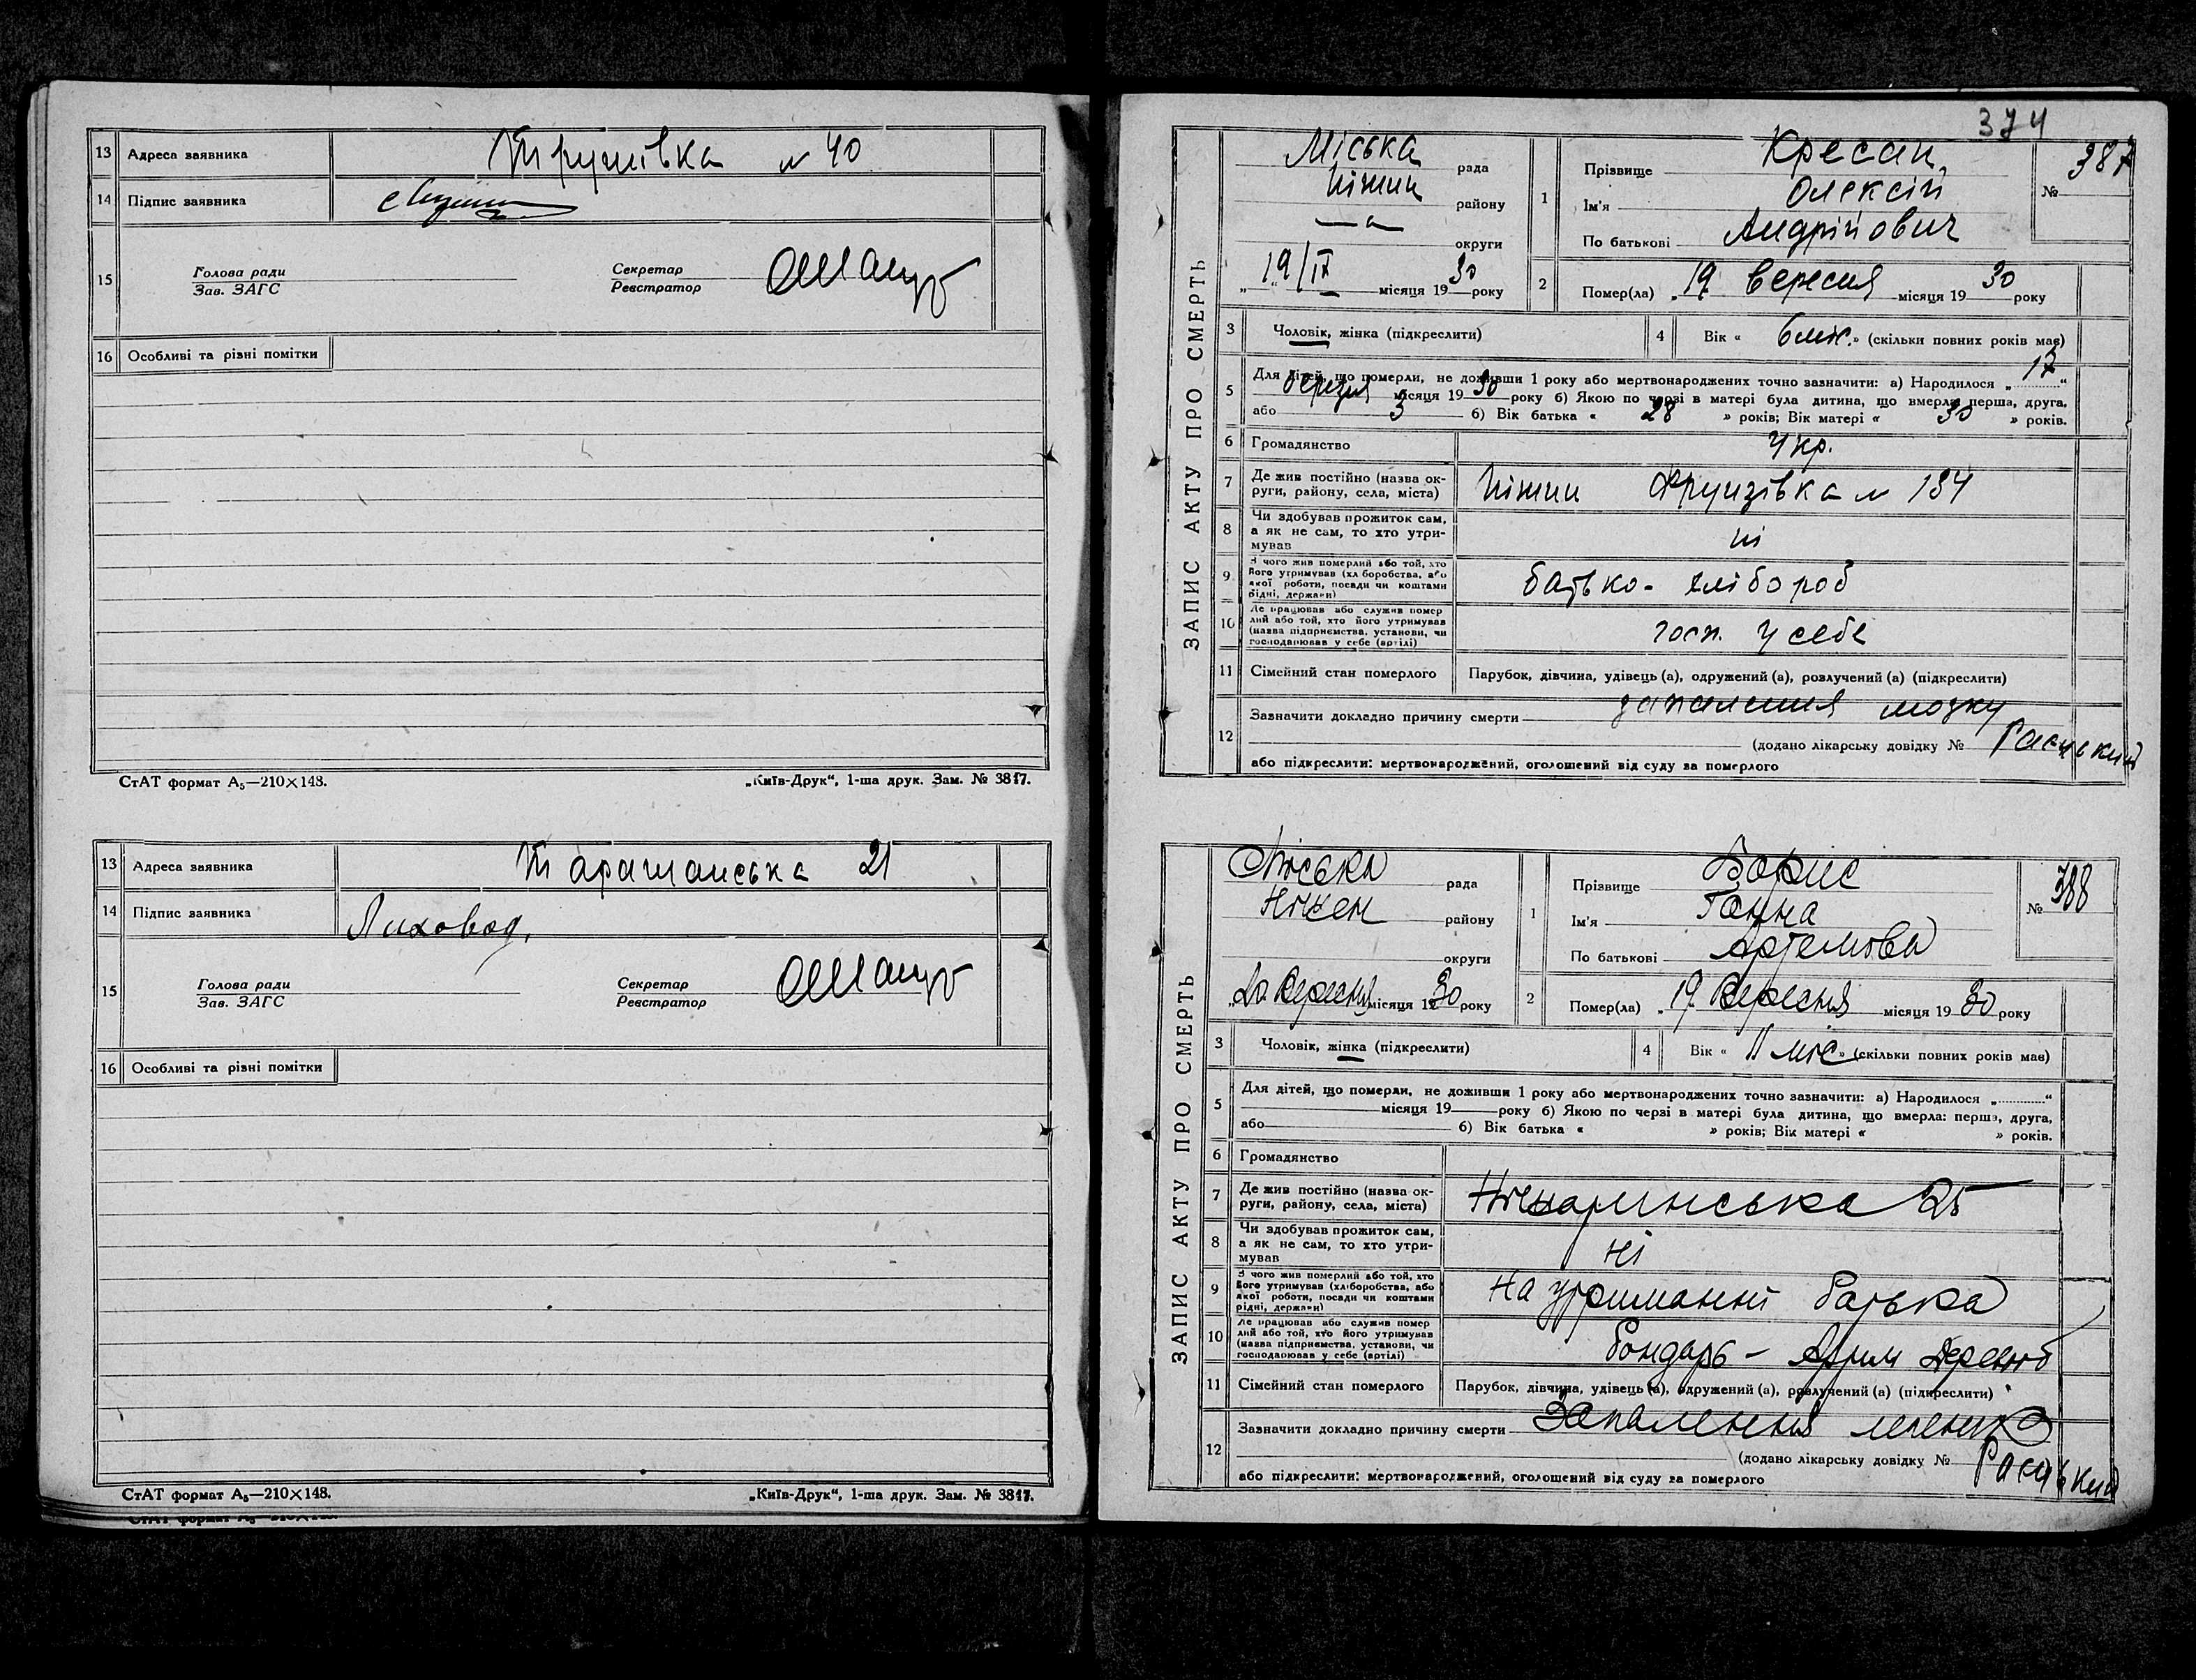 13 Адреса заявника
№ 40
14 Підпис заявника
15 Голова ради Секретар
Зав. ЗАГС Реєстратор
16 Особливі та різні помітки
СтАТ формат А₅—210×148.
„Київ-Друк“, 1-ша друк. Зам. № 3817.
13 Адреса заявника Таращанська 21
14 Підпис заявника Лиховод.
15 Голова ради Секретар
Зав. ЗАГС Реєстратор
16 Особливі та різні помітки
СтАТ формат А₅—210×148.
„Київ-Друк“, 1-ша друк. Зам. № 3817.
374
ЗАПИС АКТУ ПРО СМЕРТЬ
Міська рада
Ніжин району
округи
„19/IX“ місяця 1930 року
1 Прізвище Кресан
Ім'я Олексій
По батькові Андрійович
№ 387
2 Помер(ла) „19 вересня місяця 1930 року
3 Чоловік, жінка (підкреслити)
4 Вік « 6 міс. » (скільки повних років має)
5 Для дітей, що померли, не доживши 1 року або мертвонароджених точно зазначити: а) Народилося „17“
березня місяця 1930 року б) Якою по черзі в матері була дитина, що вмерла: перша, друга,
або 3 б) Вік батька « 28 » років; Вік матері « 30 » років.
6 Громадянство Укр.
7 Де жив постійно (назва ок-
руги, району, села, міста) Ніжин Фрунзівка № 134
8 Чи здобував прожиток сам,
а як не сам, то хто утри-
мував ні
9 З чого жив померлий або той, хто
його утримував (хліборобства, або
якої роботи, посади чи коштами
рідні, держави) батько - хлібороб
10 Де працював або служив помер
лий або той, хто його утримував
(назва підприємства, установи, чи
господарював у себе (артілі) госп. у себе
11 Сімейний стан померлого Парубок, дівчина, удівець (а), одружений (а), розлучений (а) (підкреслити)
12 Зазначити докладно причину смерти запалення мозку
(додано лікарську довідку №
або підкреслити: мертвонароджений, оголошений від суду за померлого
ЗАПИС АКТУ ПРО СМЕРТЬ
Міська рада
Ніжен району
округи
„20 Вересня місяця 1930 року
1 Прізвище Борис
Ім'я Ганна
По батькові Артемова
№ 388
2 Помер(ла) „19 Вересня місяця 1930 року
3 Чоловік, жінка (підкреслити)
4 Вік « 11 міс » (скільки повних років має)
5 Для дітей, що померли, не доживши 1 року або мертвонароджених точно зазначити: а) Народилося „ “
місяця 19 року б) Якою по черзі в матері була дитина, що вмерла: перша, друга,
або б) Вік батька « » років; Вік матері « » років.
6 Громадянство
7 Де жив постійно (назва ок-
руги, району, села, міста) 25
8 Чи здобував прожиток сам,
а як не сам, то хто утри-
мував ні
9 З чого жив померлий або той, хто
його утримував (хліборобства, або
якої роботи, посади чи коштами
рідні, держави) на утриманні батька
10 Де працював або служив помер
лий або той, хто його утримував
(назва підприємства, установи, чи
господарював у себе (артілі) бондарь -
11 Сімейний стан померлого Парубок, дівчина, удівець (а), одружений (а), розлучений (а) (підкреслити)
12 Зазначити докладно причину смерти Запалення легенів
(додано лікарську довідку №
або підкреслити: мертвонароджений, оголошений від суду за померлого